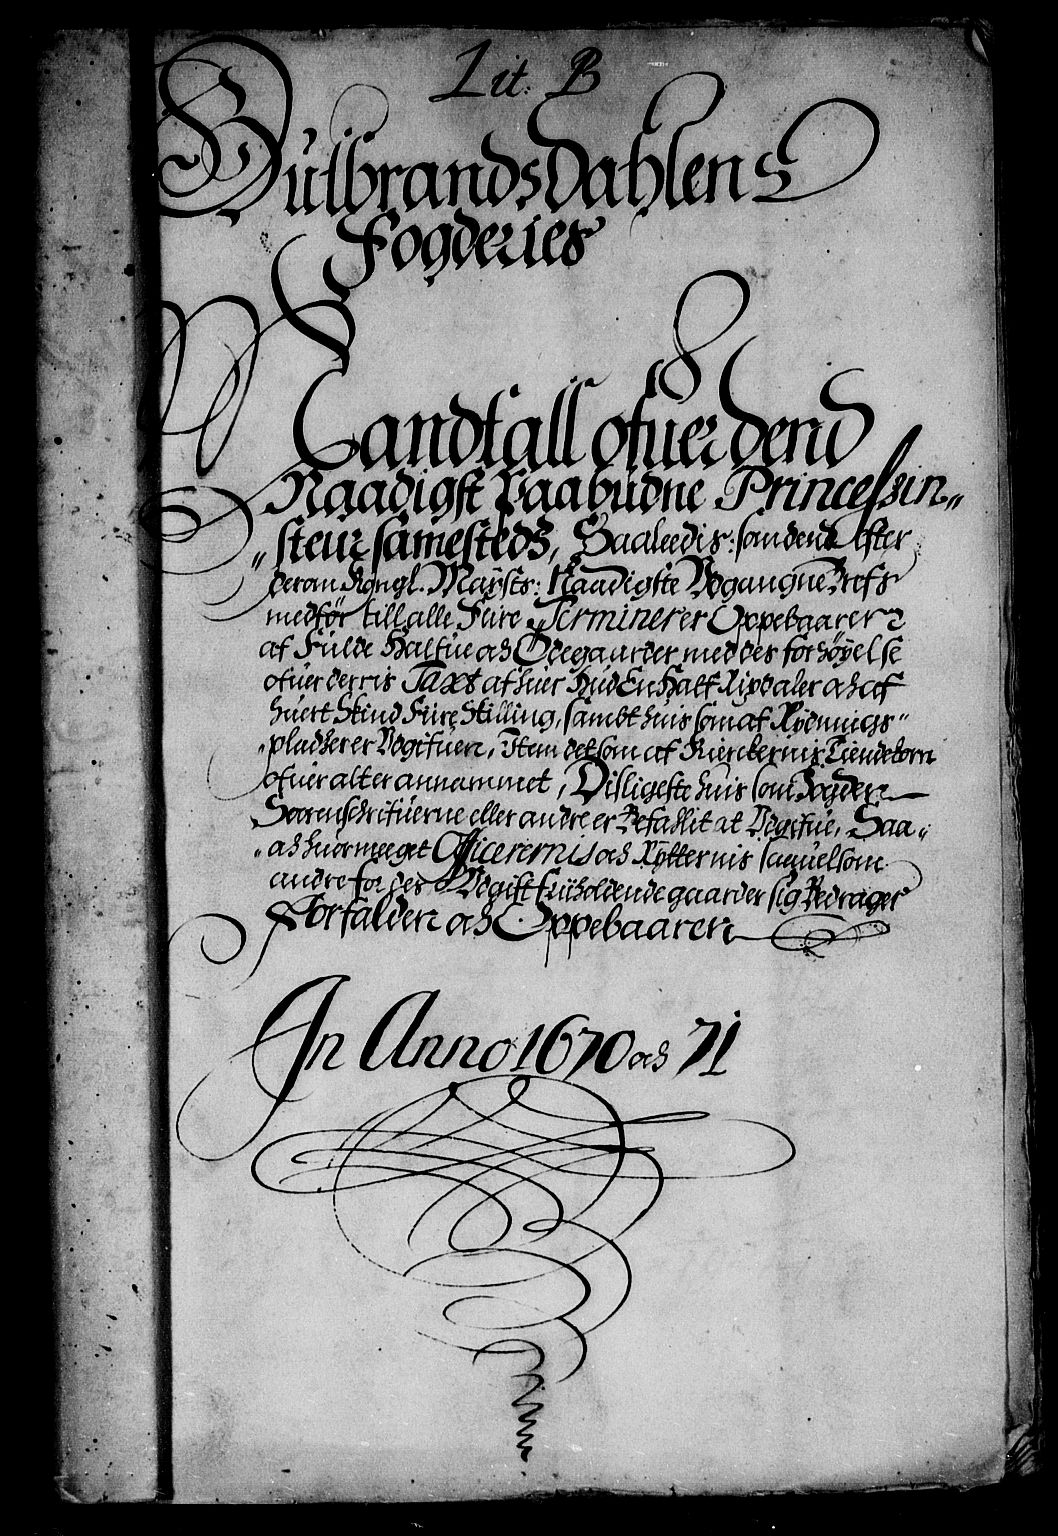 Lit: B
Gulbrandsdahlens
Fogderies
Mandtall ofuer dend
Naadigst Paabudne Princessin„
„steur samesteds, Saaleedis: som dend Efter
derom Kongl. Maÿsts: Naadigste Udgangne Brefs
medför till alle Fiire Terminer er Oppebaaren
af Fulde Halfue och Ödegaarder med des forhöyelse
ofuer derris Taxt af huer Hud En Half Rixdaler och af
huert Skind Fiire Skilling, sambt huis som af Rödnings„
„pladtzer er Udgifuen, Item det som af Kierckernis Tiendekorn
ofuer alt er annammet, Disligeste huis som Fogden
Sorenschrifuerne eller andre er Befahlit at Udgifue, Saa„
„och huor meget Officerernis och Rÿtternis saauelsom
andre for des Udgift friholdende gaarder sig Bedrager
Forfalden och Oppebaaren
In Anno 1670 och 71